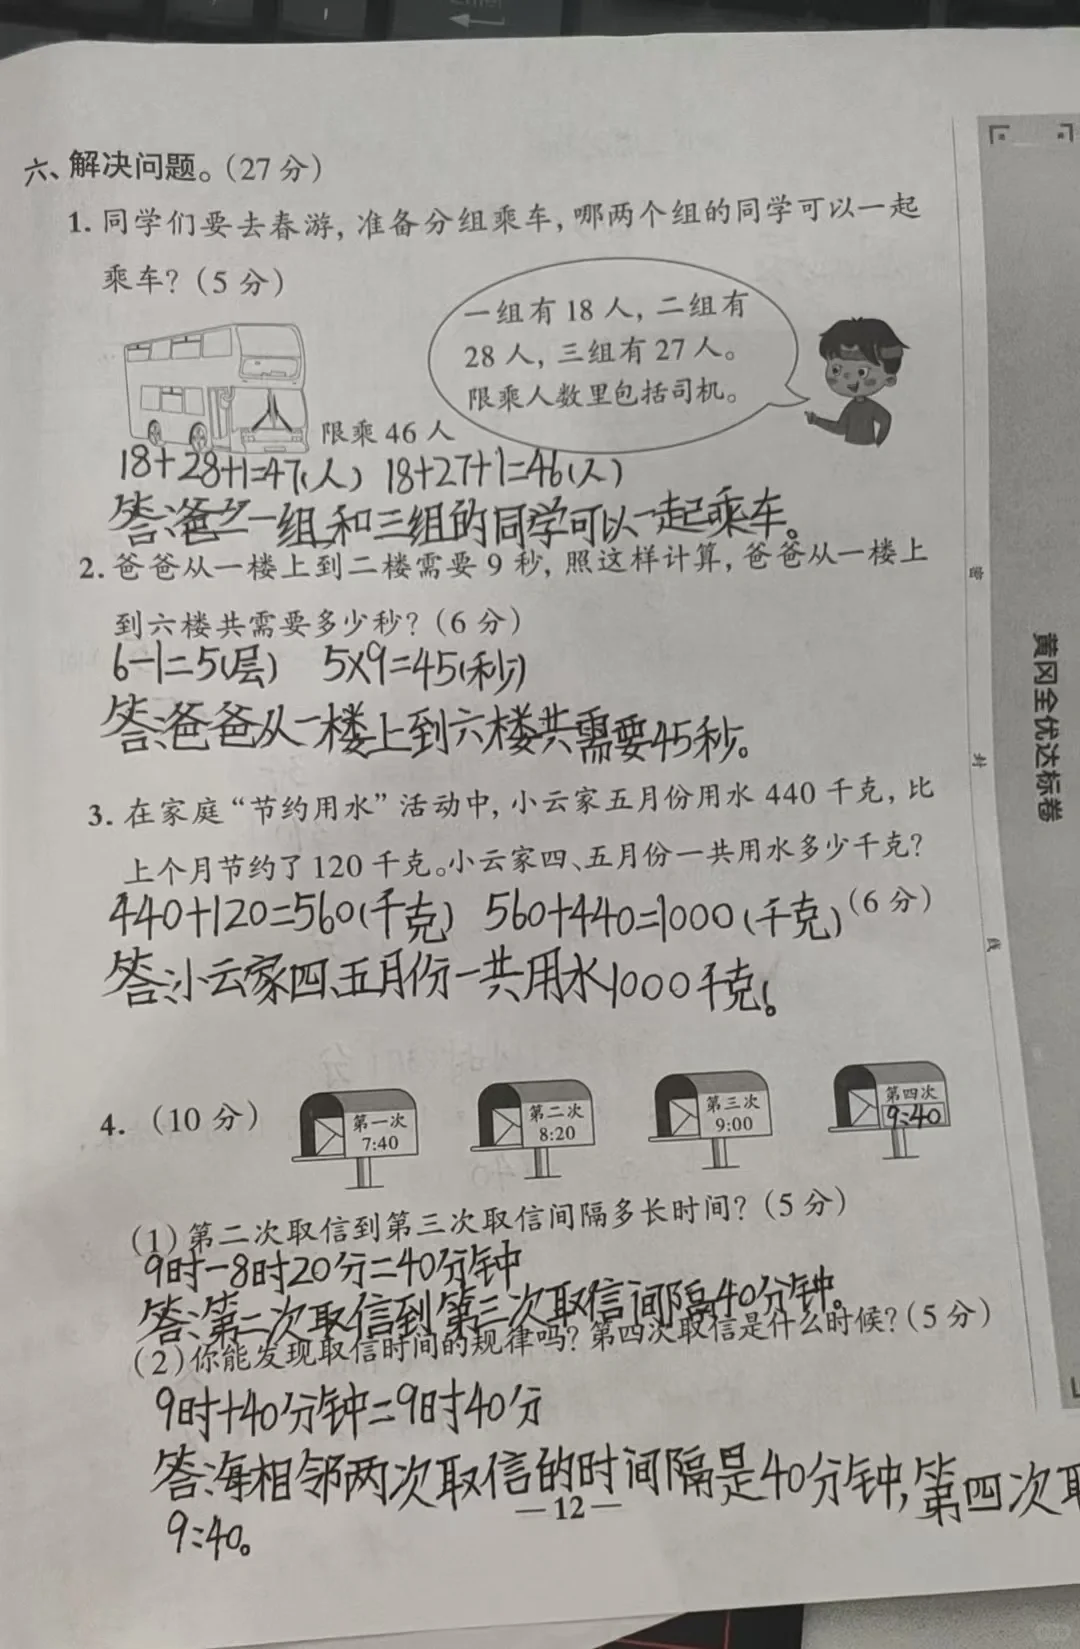 六、解决问题。(27 分)
1. 同学们要去春游,准备分组乘车,哪两个组的同学可以一起
乘车?(5 分)
一组有 18 人,二组有
28 人,三组有 27 人。
限乘人数里包括司机。
限乘 46 人
18+28+1=47(人) 18+27+1=46(人)
答:一组和三组的同学可以一起乘车。
2. 爸爸从一楼上到二楼需要 9 秒,照这样计算,爸爸从一楼上
到六楼共需要多少秒?(6 分)
6-1=5(层) 5×9=45(秒)
答:爸爸从一楼上到六楼共需要45秒。
3. 在家庭“节约用水”活动中,小云家五月份用水 440 千克,比
上个月节约了 120 千克。小云家四、五月份一共用水多少千克?
(6 分)
440+120=560(千克) 560+440=1000(千克)
答:小云家四、五月份一共用水1000千克。
4. (10 分)
第一次
7:40
第二次
8:20
第三次
9:00
第四次
9:40
(1) 第二次取信到第三次取信间隔多长时间?(5 分)
9时-8时20分=40分钟
答:第二次取信到第三次取信间隔40分钟。
(2) 你能发现取信时间的规律吗?第四次取信是什么时候?(5 分)
9时+40分钟=9时40分
答:每相邻两次取信的时间隔是40分钟,第四次取
9:40。
—12—
密
封
线
黄冈全优达标卷